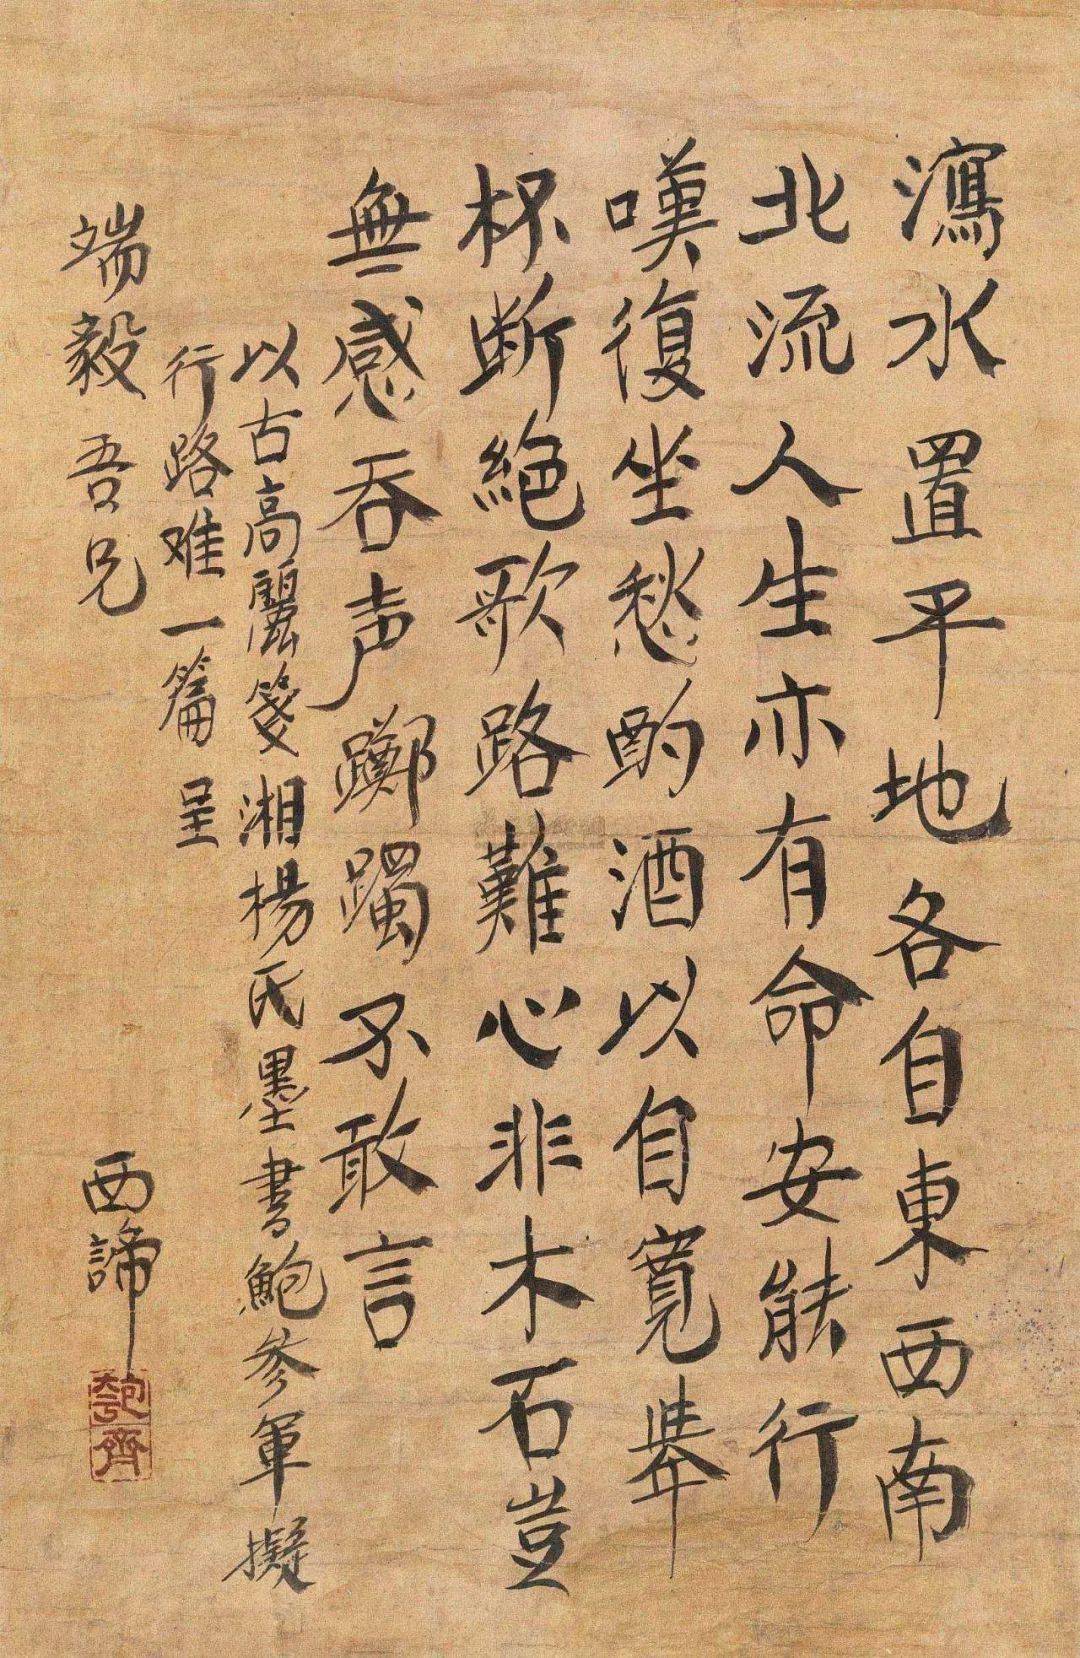 瀉水置平地各自東西南
北流人生亦有命安能行
嘆復坐愁酌酒以自寬舉
杯断絕歌路難心非木石豈
無感吞声躑躅不敢言
以古高麗箋湘楊氏墨書鮑參軍擬
行路难一篇呈
端毅吾兄
西諦
匏齊